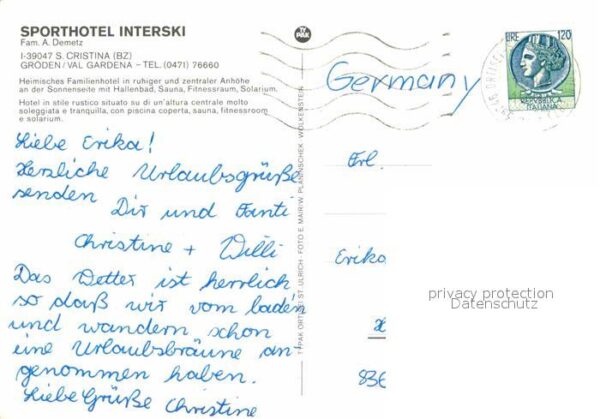 SPORTHOTEL INTERSKI
Fam. A. Demetz
I-39047 S. CRISTINA (BZ)
GRÖDEN/VAL GARDENA – TEL. (0471) 76660
Heimisches Familienhotel in ruhiger und zentraler Anhöhe
an der Sonnenseite mit Hallenbad, Sauna, Fitnessraum, Solarium.
Hotel in stile rustico situato su di un'altura centrale molto
soleggiata e tranquilla, con piscina coperta, sauna, fitnessroom
e solarium.
Liebe Erika!
Herzliche Urlaubsgrüße
senden
Dir und Fanti
Christine + Willi
Das Wetter ist herrlich
so daß wir vom baden
und wandern schon
eine Urlaubsbräune an-
genommen haben.
Liebe Grüße Christine
PAK
ORTISEI ST. ULRICH - FOTO E. MAIR/W. PLANINSCHEK WOLKENSTEIN
Germany
120
REPVBBLICA
ITALIANA
Frl.
Erika
836
privacy protection
Datenschutz